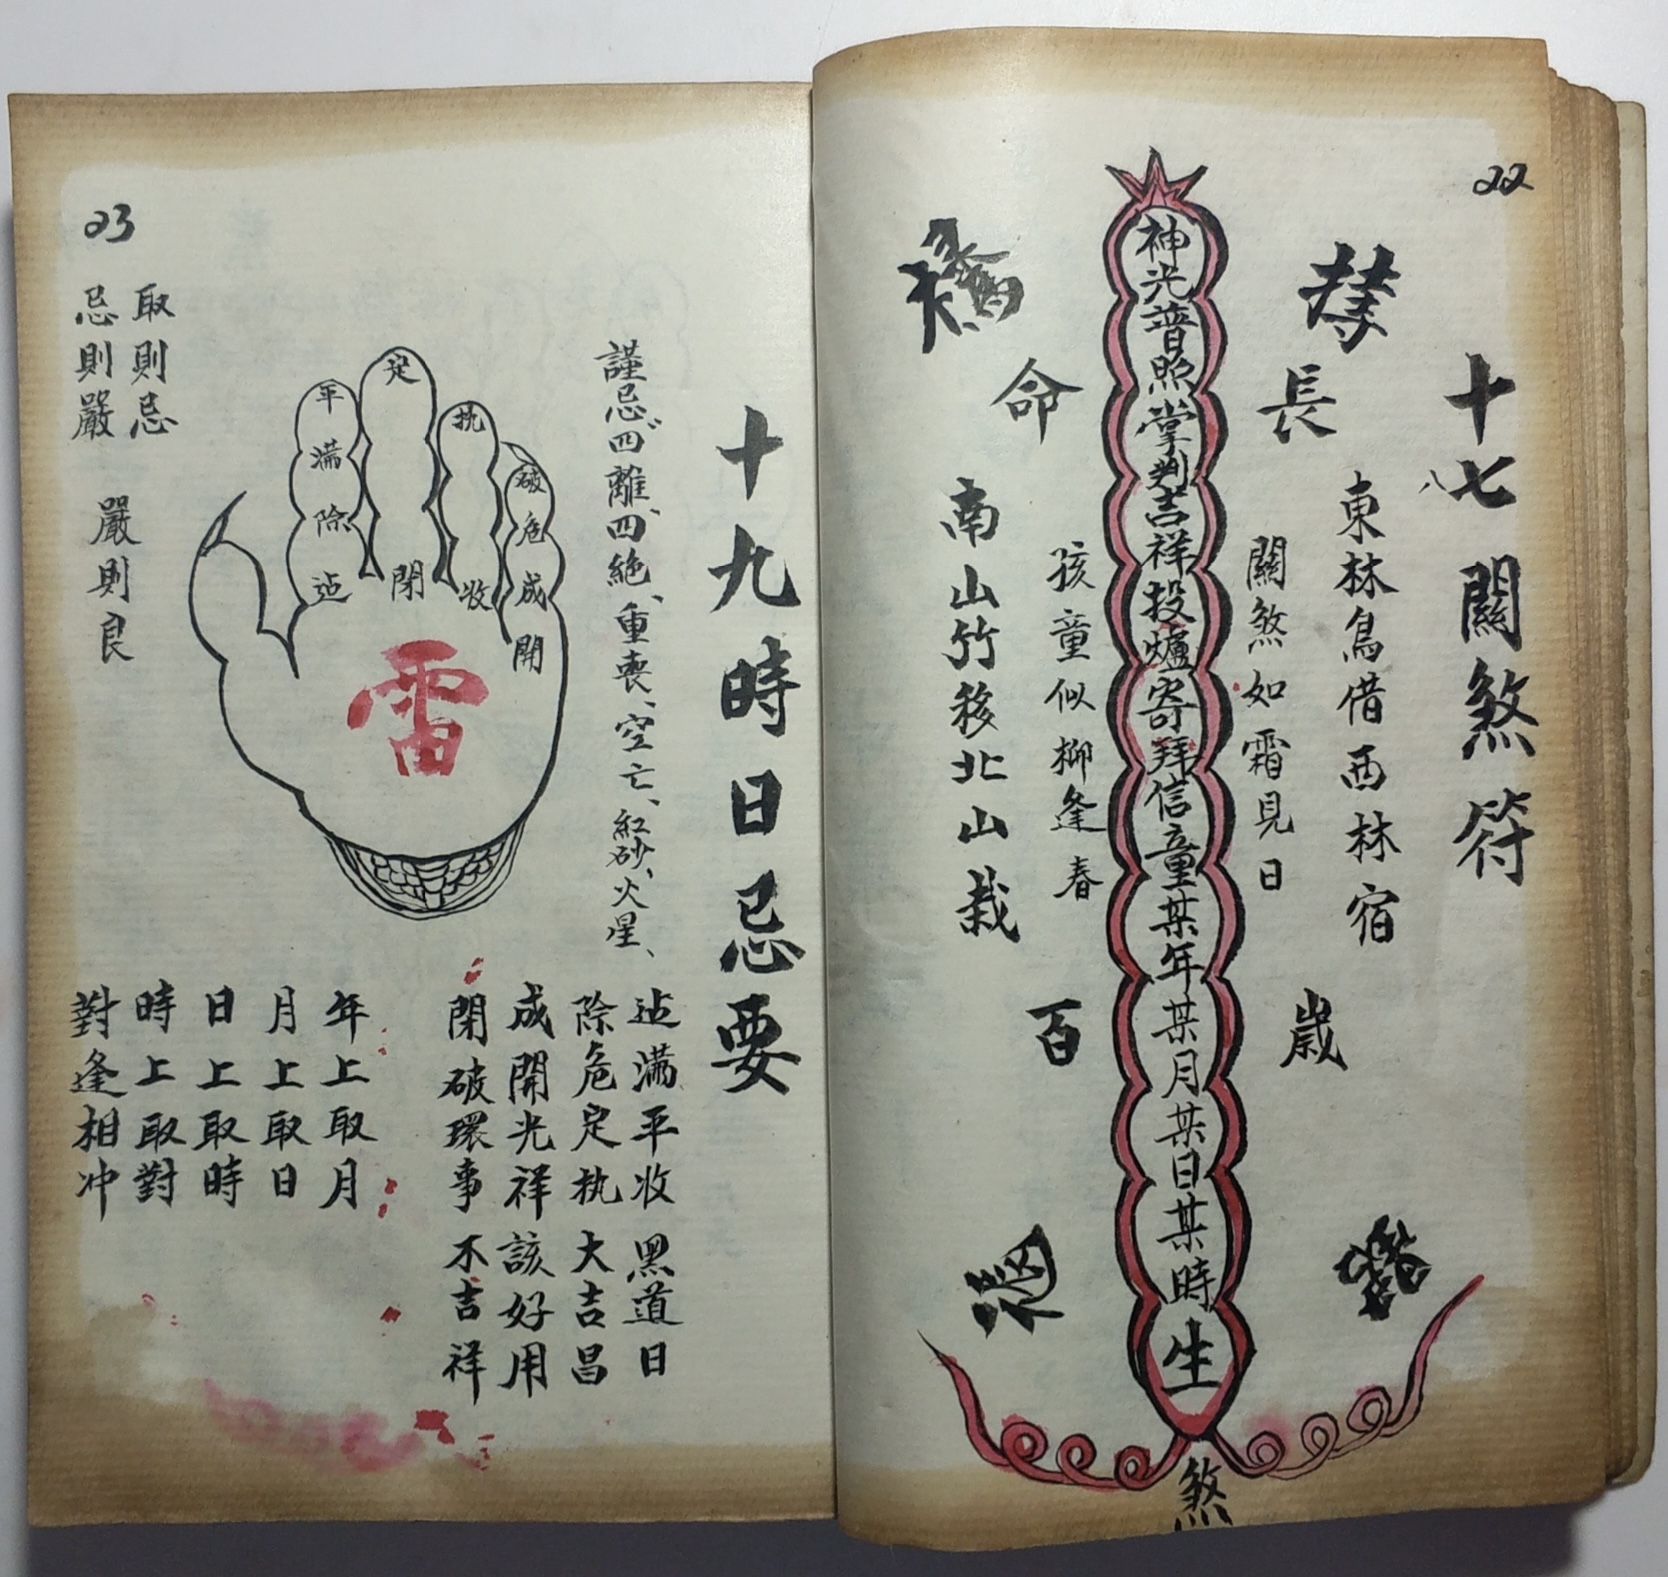 22
十七八關煞符
東林鳥借西林宿
長
歲
關煞如霜見日
神光普照掌判吉祥投爐寄拜信童某年某月某日某時生
煞
孩童似柳逢春
命
百
南山竹移北山栽
十九時日忌要
謹忌四離、四絕、重喪、空亡、紅砂、火星、
迠滿平收黑道日
除危定执大吉昌
成開光祥該好用
閉破環事不吉祥
破
危
成
開
执
收
定
閉
年
滿
除
迠
雷
年上取月
月上取日
日上取時
時上取對
對逢相冲
23
取則忌
忌則嚴
嚴則良